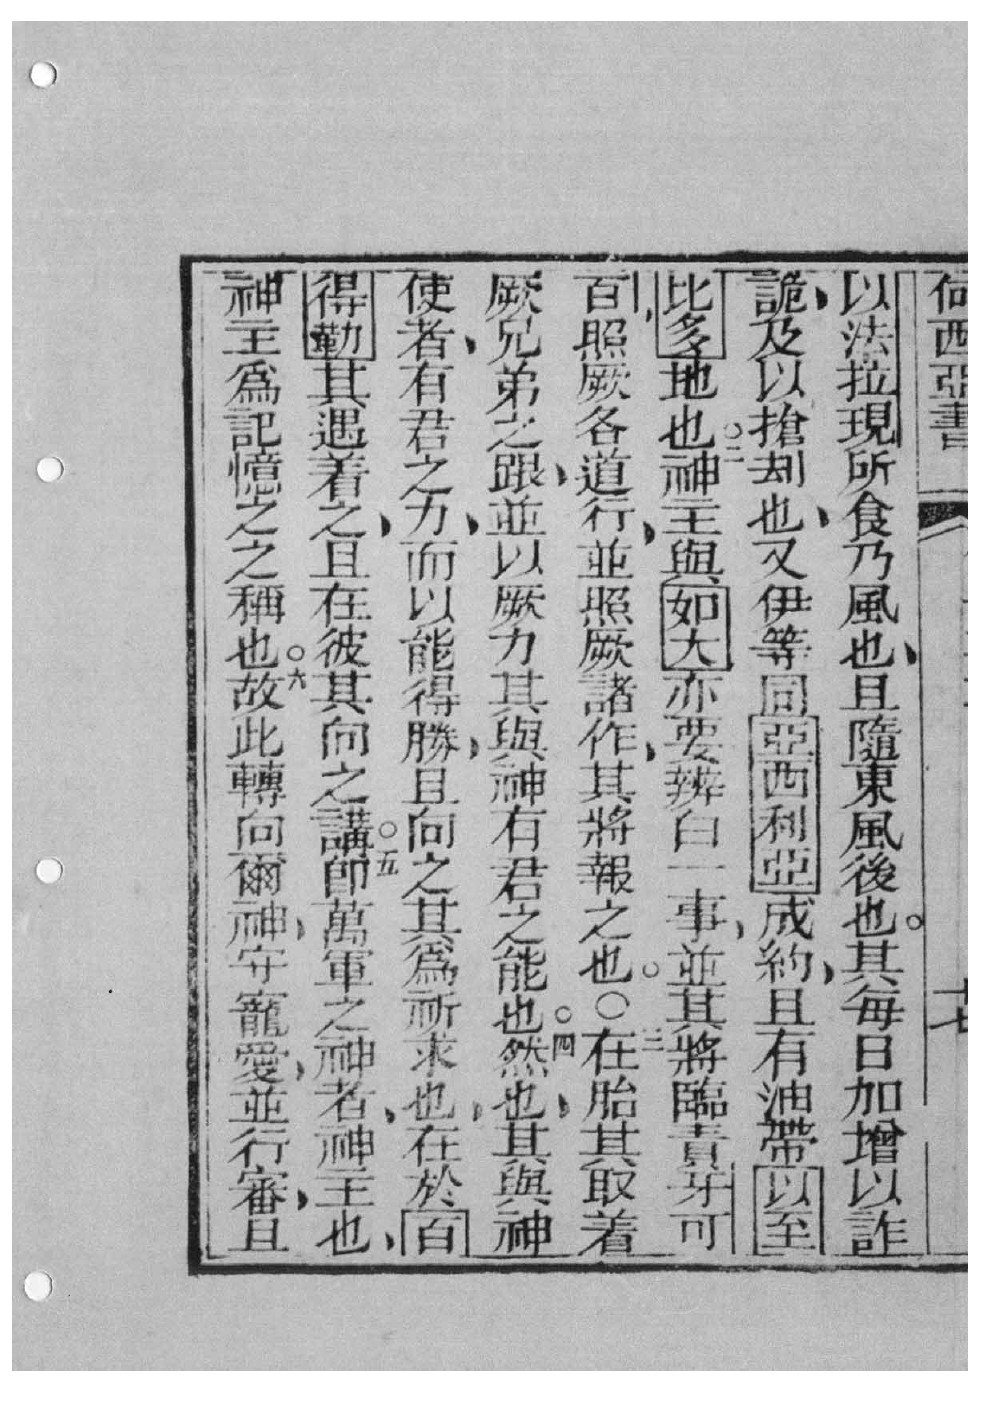 何西亞書 十七
以法拉現所食乃風也且隨東風後也其每日加增以詐
詭及以搶刼也又伊等同亞西利亞成約且有油帶以至
比多地也○二神主與如大亦要辨白一事並其將臨責牙可
百照厥各道行並照厥諸作其將報之也○○三在胎其取着
厥兄弟之跟並以厥力其與神有君之能也○四然也其與神
使者有君之力而以能得勝且向之其爲祈求也在於百
得勒其遇着之且在彼其向之講○五卽萬軍之神者神主也
神主爲記憶之之稱也○六故此轉向爾神守寵愛並行審且